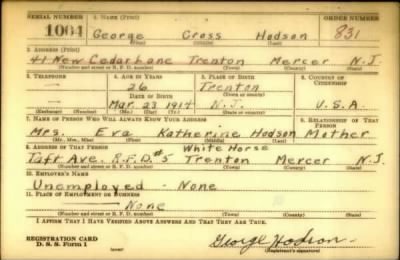 SERIAL NUMBER 1. NAME (Print) ORDER NUMBER
1004 George Cross Hodson 831
(First) (Middle) (Last)
2. ADDRESS (Print)
41 New Cedar Lane Trenton Mercer N.J.
(Number and street or R. F. D. number) (Town) (County) (State)
3. TELEPHONE 4. AGE IN YEARS 5. PLACE OF BIRTH 6. COUNTRY OF CITIZENSHIP
— 26 Trenton
DATE OF BIRTH (Town or county)
— Mar. 23 1914 N.J. U.S.A.
(Exchange) (Number) (Mo.) (Day) (Yr.) (State or country)
7. NAME OF PERSON WHO WILL ALWAYS KNOW YOUR ADDRESS 8. RELATIONSHIP OF THAT PERSON
Mrs. Eva Katherine Hodson Mother
(Mr., Mrs., Miss) (First) (Middle) (Last)
9. ADDRESS OF THAT PERSON White Horse
Taft Ave. R.F.D. #5 Trenton Mercer N.J.
(Number and street or R. F. D. number) (Town) (County) (State)
10. EMPLOYER'S NAME
Unemployed - None
11. PLACE OF EMPLOYMENT OR BUSINESS
— None
(Number and street or R. F. D. number) (Town) (County) (State)
I AFFIRM THAT I HAVE VERIFIED ABOVE ANSWERS AND THAT THEY ARE TRUE.
REGISTRATION CARD
D. S. S. Form 1 (over) George Hodson
(Registrant's signature)